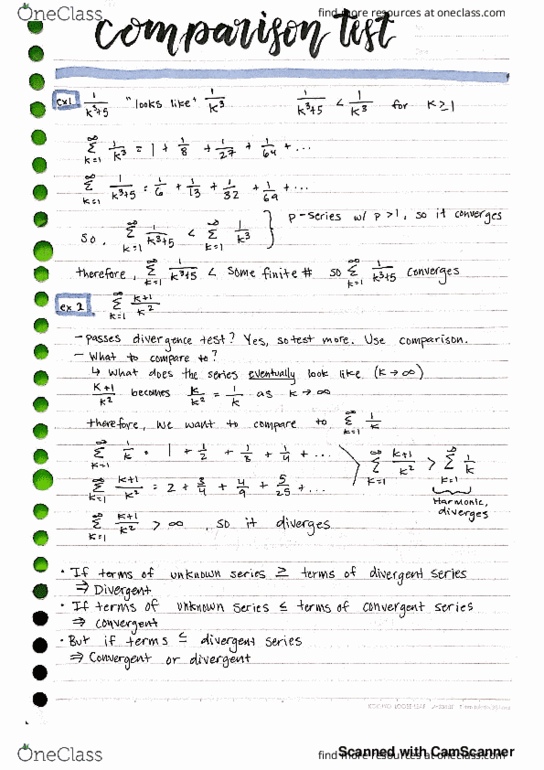 OneClass
find more resources at oneclass.com
comparison test
ex1 1/(k³+5) "looks like" 1/k³ 1/(k³+5) < 1/k³ for k≥1
∞Σk=1 1/k³ = 1 + 1/8 + 1/27 + 1/64 + ...
∞Σk=1 1/(k³+5) = 1/6 + 1/13 + 1/32 + 1/69 + ...
so, ∞Σk=1 1/(k³+5) < ∞Σk=1 1/k³ } p-series w/ p>1, so it converges
therefore, ∞Σk=1 1/(k³+5) < some finite # so ∞Σk=1 1/(k³+5) converges
ex 2. ∞Σk=1 (k+1)/k²
- passes divergence test? Yes, so test more. Use comparison.
- What to compare to?
↳ What does the series eventually look like (k→∞)
(k+1)/k² becomes k/k² = 1/k as k→∞
therefore, we want to compare to ∞Σk=1 1/k
∞Σk=1 1/k = 1 + 1/2 + 1/3 + 1/4 + ...
∞Σk=1 (k+1)/k² = 2 + 3/4 + 4/9 + 5/25 + ...
∞Σk=1 (k+1)/k² > ∞Σk=1 1/k
Harmonic,
diverges
∞Σk=1 (k+1)/k² > ∞, so it diverges
• If terms of unknown series ≥ terms of divergent series
⇒ Divergent
• If terms of unknown series ≤ terms of convergent series
⇒ convergent
• But if terms ≤ divergent series
⇒ Convergent or divergent
OneClass
find more resources at oneclass.com
Scanned with CamScanner